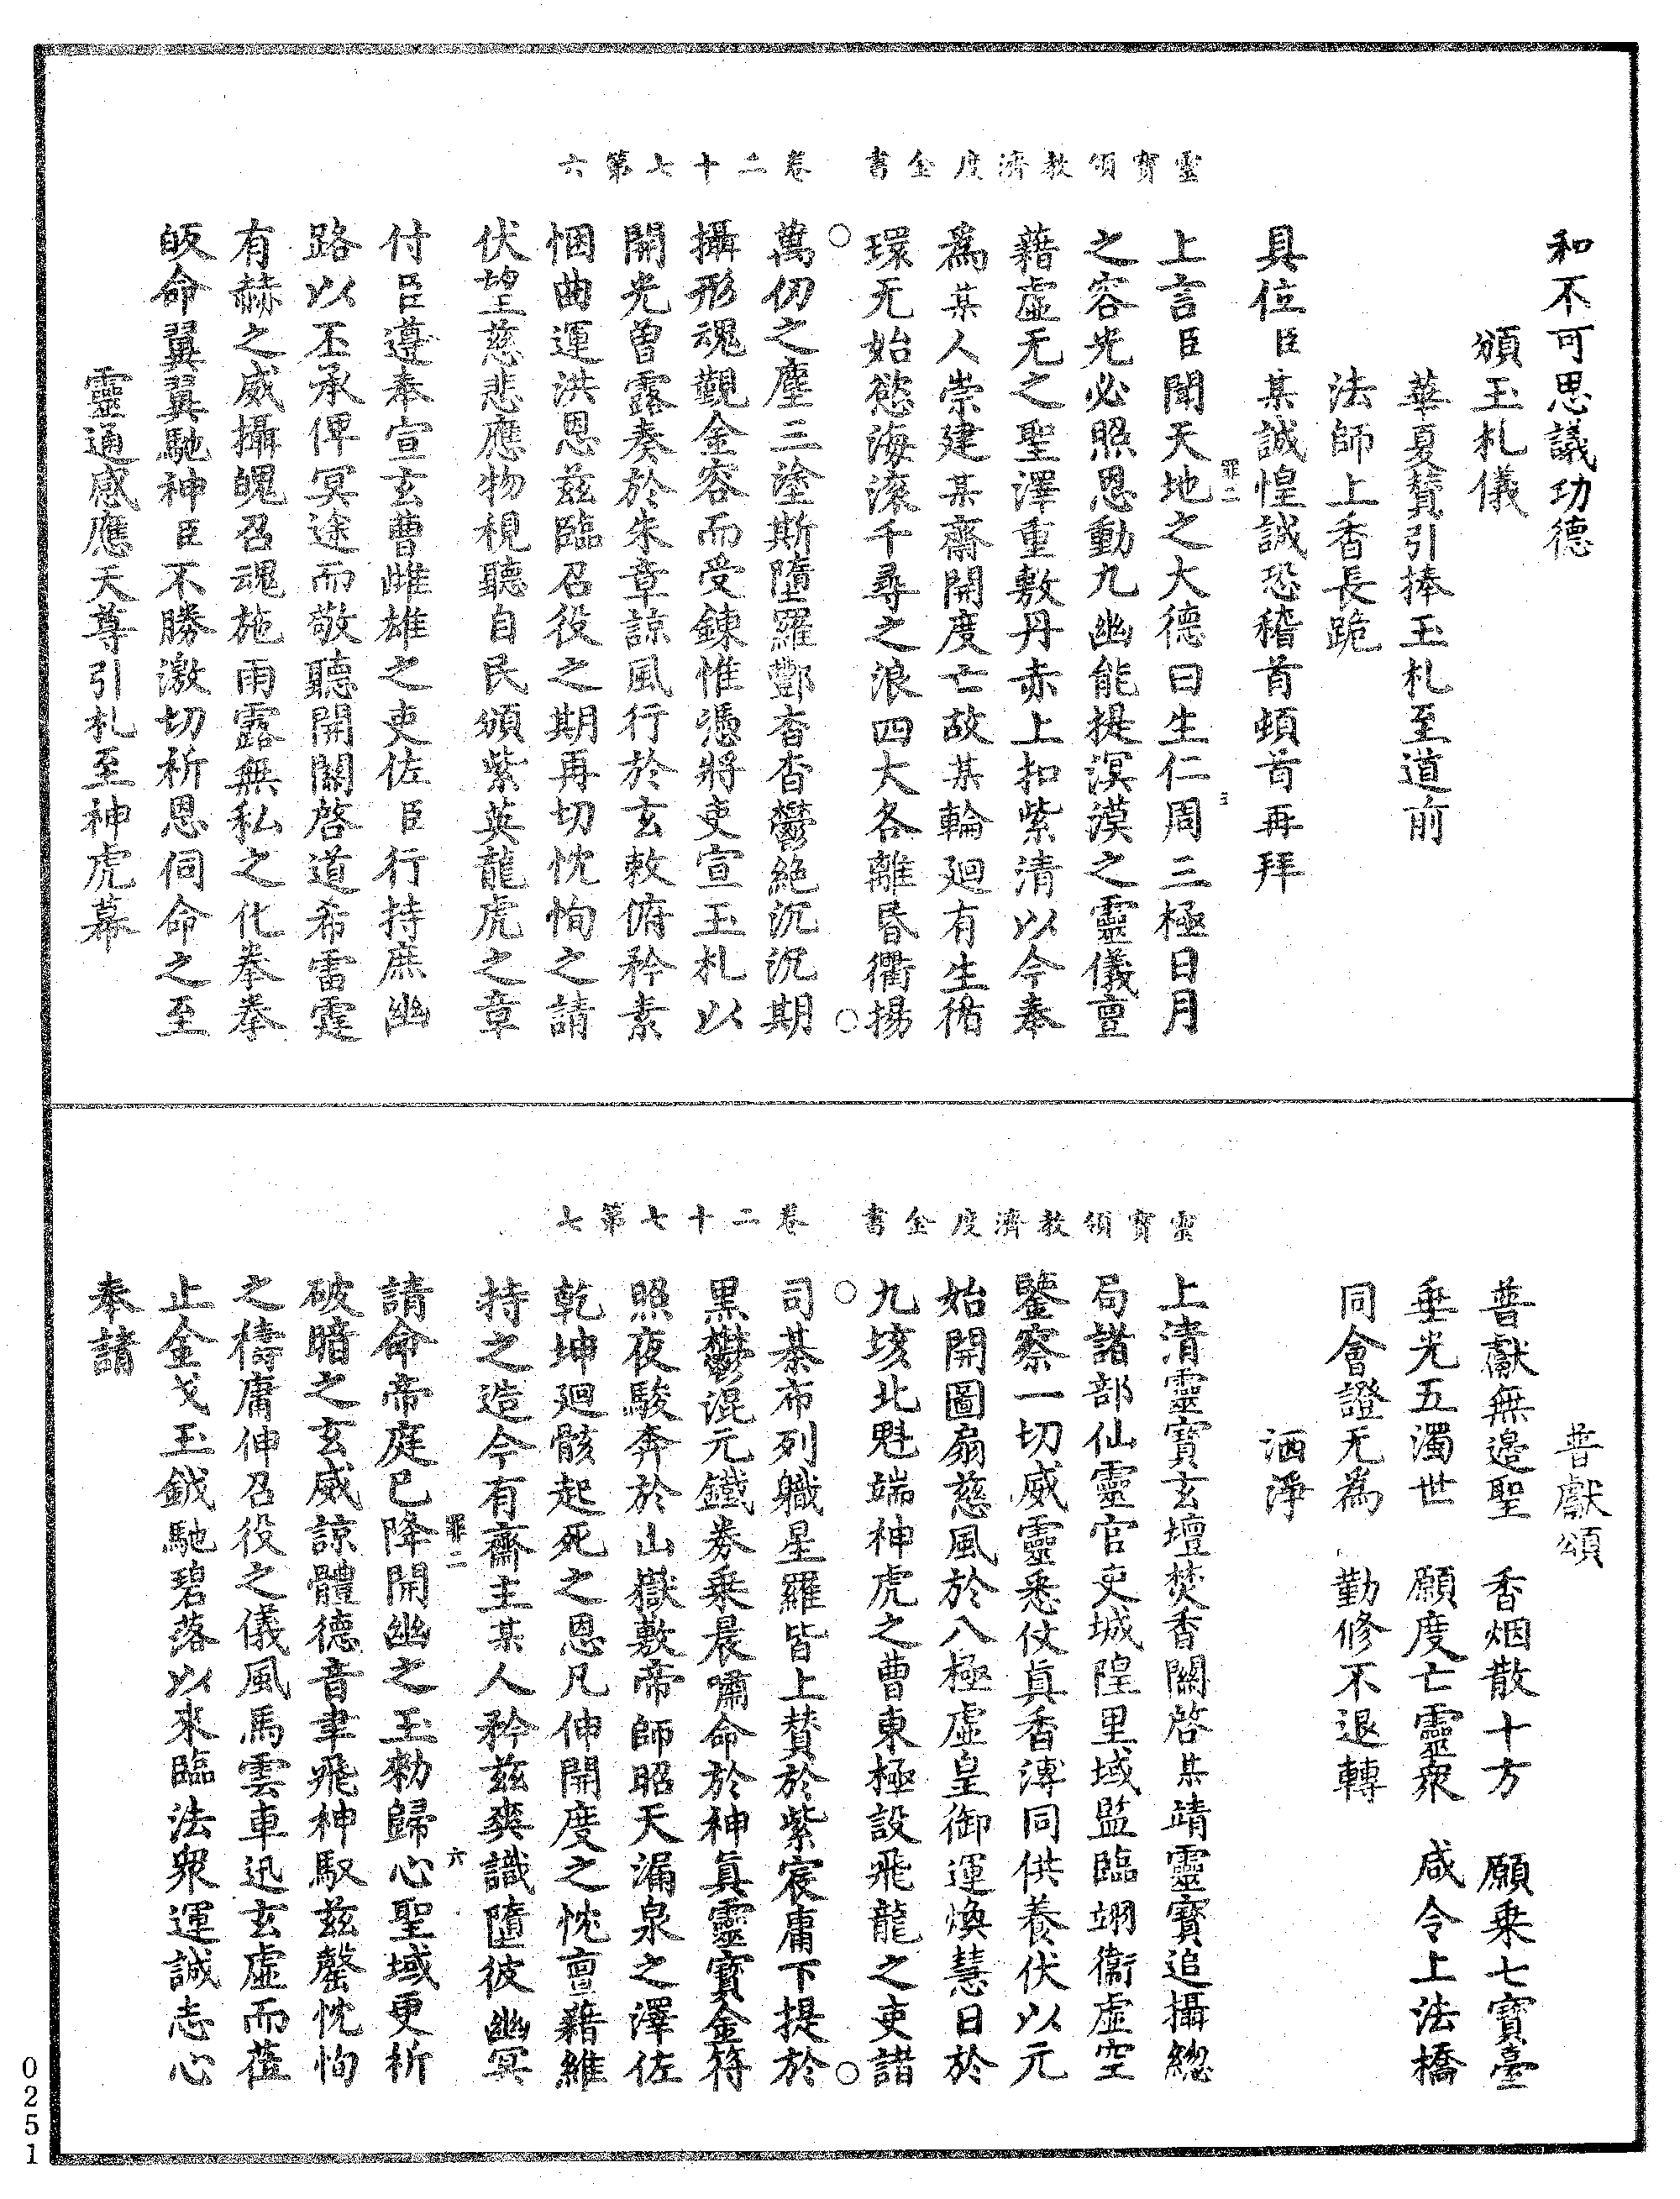 靈寶領教濟度金書　卷二十七第六
和不可思議功德
頒玉札儀
華夏贊引捧玉札至道前
法師上香長跪
具位臣某誠惶誠恐稽首頓首再拜
上言臣聞天地之大德曰生仁周三極日月
罪二
五
之容光必照恩動九幽能提溟漠之靈儀亶
藉虛无之聖澤重敷丹赤上扣紫清以今奉
為某人崇建某齋開度亡故某輪廻有生循
環无始慾海滚千尋之浪四大各離昏衢揚
萬仞之塵三塗斯墮羅酆杳杳鬱絕沉沉期
攝形魂觀金容而受鍊惟憑將吏宣玉札以
開光曾露奏於朱章諒風行於玄敕俯矜素
悃曲運洪恩兹臨召役之期再切忱恂之請
伏望慈悲應物視聽自民頒紫英龍虎之章
付臣遵奉宣玄曹雌雄之吏佐臣行持庶幽
路以丕承俾冥途而敬聽開關啓道希雷霆
有赫之威攝魄召魂施雨露無私之化拳拳
皈命翼翼馳神臣不勝激切祈恩伺命之至
靈通感應天尊引札至神虎幕
靈寶領教濟度金書　卷二十七第七
普獻頌
普獻無邊聖　香烟散十方　願乗七寶臺
垂光五濁世　願度亡靈衆　咸令上法橋
同會證无為　勤修不退轉
洒淨
上清靈寶玄壇焚香關啓某靖靈寶追攝緫
局諸部仙靈官吏城隍里域監臨翊衞虛空
鑒察一切威靈悉仗真香溥同供養伏以元
始開圖扇慈風於八極虛皇御運煥慧日於
九垓北魁端神虎之曹東極設飛龍之吏諸
司棊布列職星羅皆上賛於紫宸庸下提於
黒鬱混元鐵券乗晨嘯命於神真靈寳金符
照夜駿奔於山嶽敷帝師昭天漏泉之澤佐
乾坤廻骸起死之恩凡伸開度之忱亶藉維
持之造今有齋主某人矜兹爽識墮彼幽冥
請命帝庭已降開幽之玉勑歸心聖域更祈
罪二
六
破暗之玄威諒體德音聿飛神馭兹罄忱恂
之禱庸伸召役之儀風馬雲車迅玄虛而蒞
止金戈玉鉞馳碧落以來臨法衆運誠志心
奉請
0251